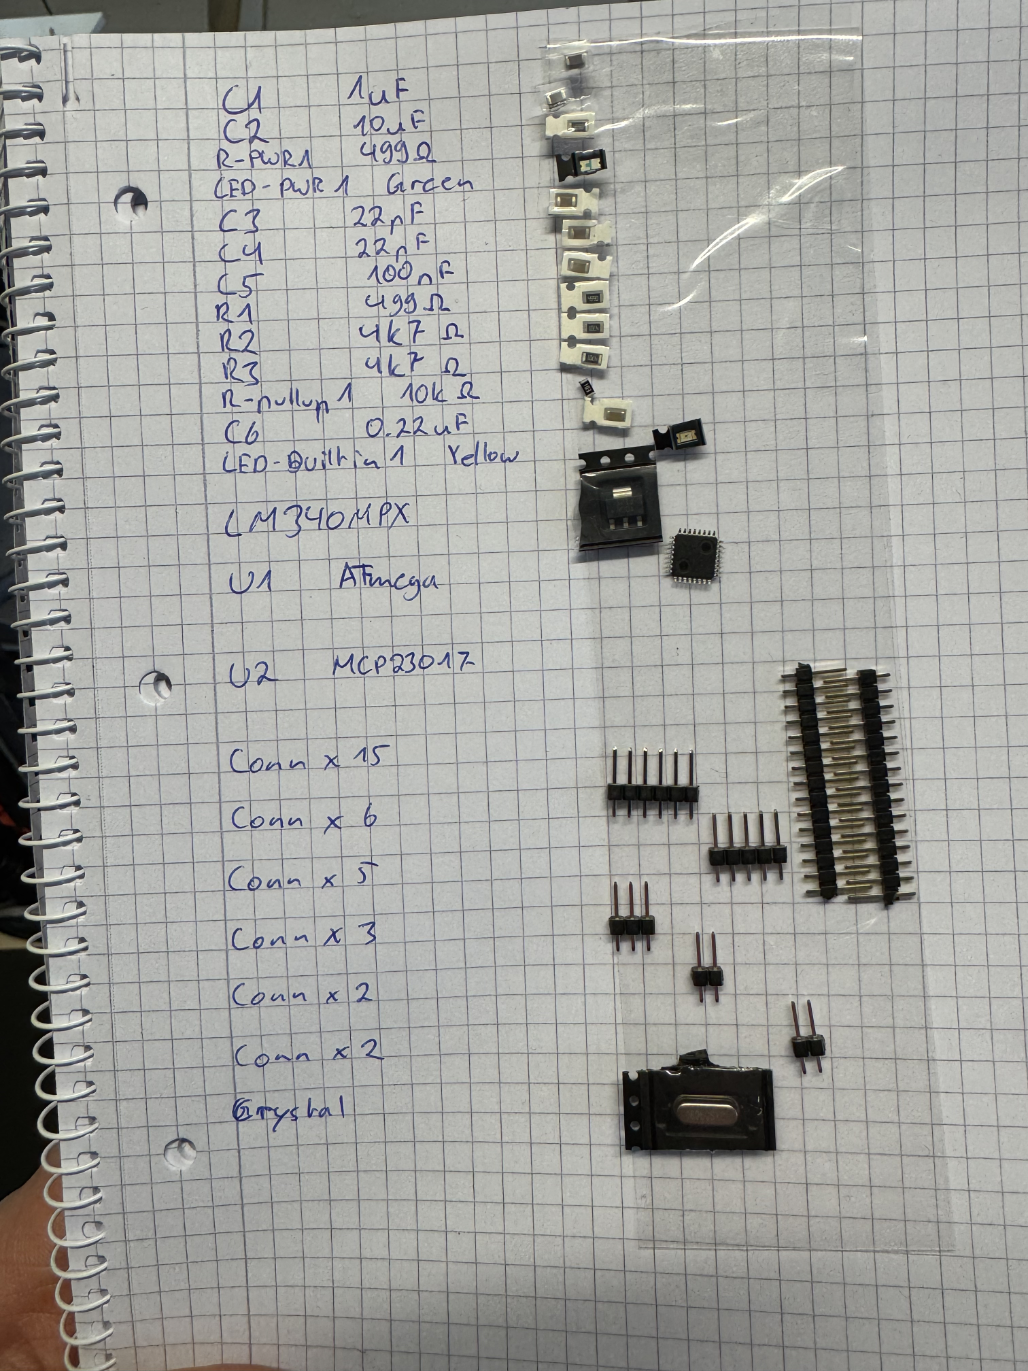 C1 1uF
C2 10uF
R-PWR1 499Ω
LED-PWR1 Green
C3 22pF
C4 22pF
C5 100nF
R1 499Ω
R2 4k7 Ω
R3 4k7 Ω
R-pullup1 10k Ω
C6 0.22uF
LED-Builtin1 Yellow
LM340MPX
U1 ATmega
U2 MCP23017
Conn x 15
Conn x 6
Conn x 5
Conn x 3
Conn x 2
Conn x 2
Crystal